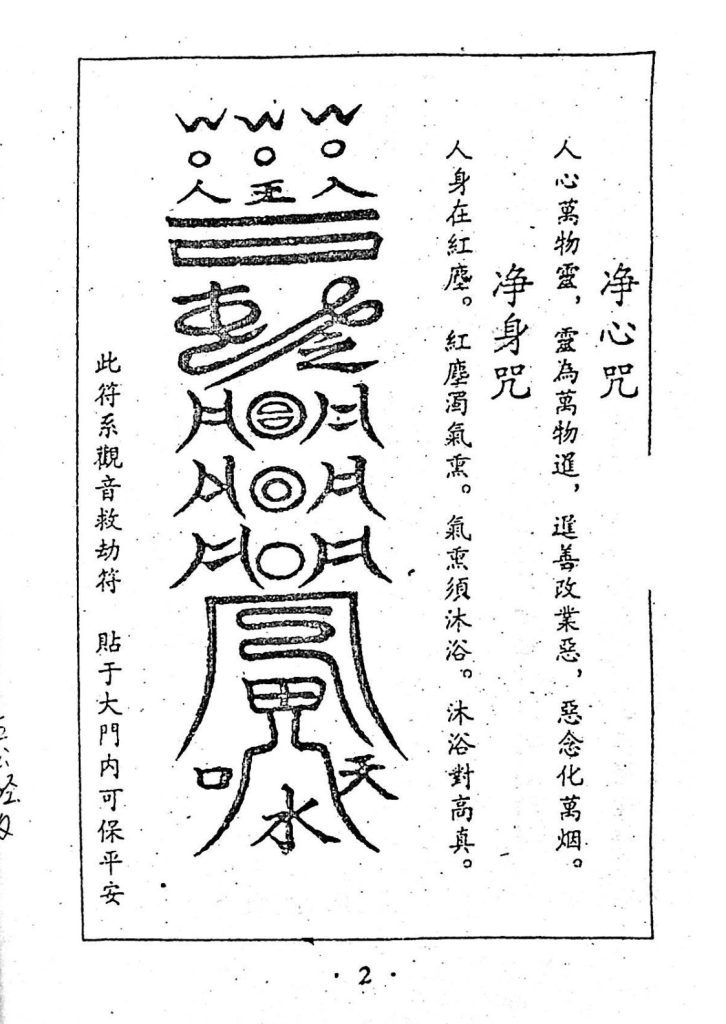 净心咒
人心萬物靈，靈為萬物暹，暹善改業惡，惡念化萬烟。
净身咒
人身在紅塵。紅塵濁氣熏。氣熏須沐浴。沐浴對高真。
人 天 人
口 水 天
此符系觀音救劫符 貼于大門内可保平安
·2·